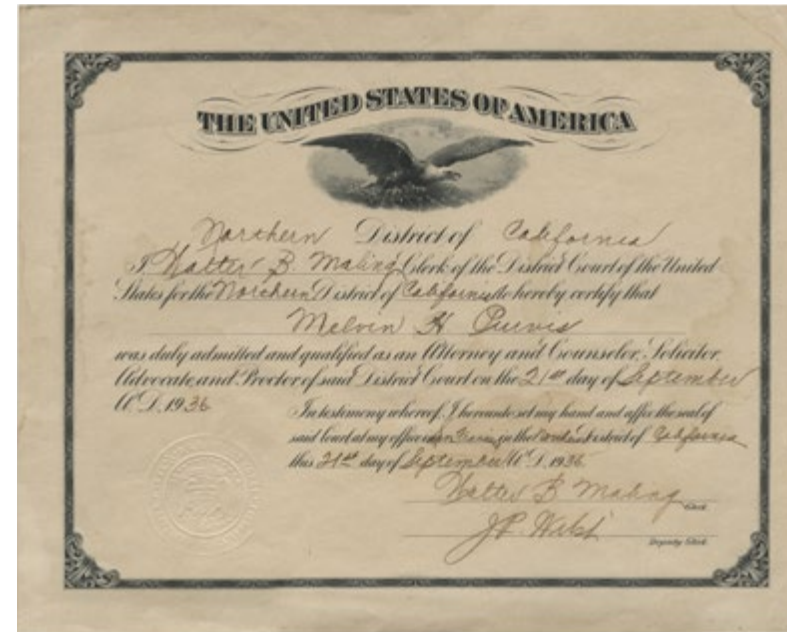 THE UNITED STATES OF AMERICA
Northern District of California
I Walter B. Maling Clerk of the District Court of the United
States for the Northern District of California do hereby certify that
Melvin H. Purvis
was duly admitted and qualified as an Attorney and Counselor, Solicitor,
Advocate, and Proctor of said District Court on the 21st day of September
A.D. 1936
In testimony whereof, I hereunto set my hand and affix the seal of
said Court at my office in the Northern District of California
this 21st day of September A.D. 1936.
Walter B Maling
Clerk.
Deputy Clerk.